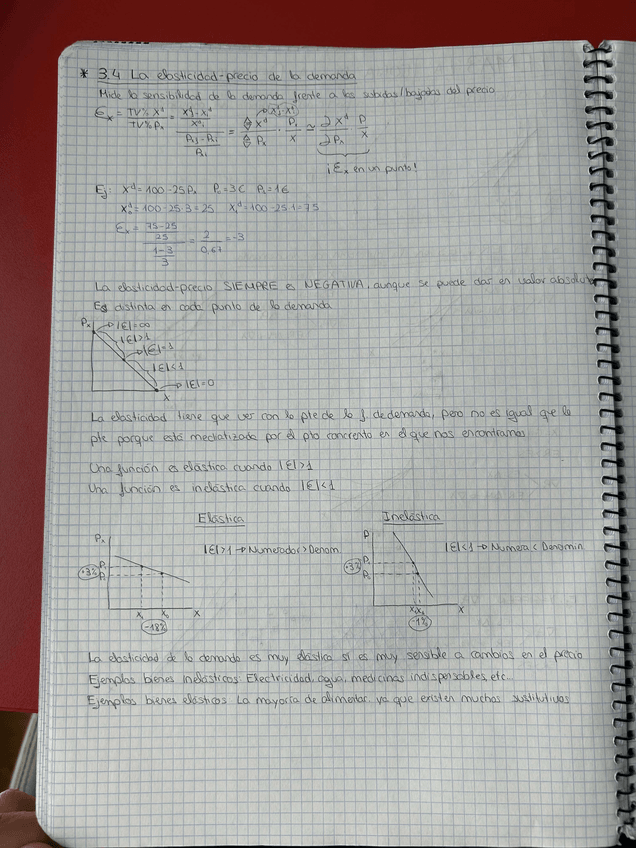 * 3.4 La elasticidad-precio de la demanda
Mide la sensibilidad de la demanda frente a las subidas/bajadas del precio
Ɛx = TV% X^d / TV% Px = = · P / x ≃ ∂X^d / ∂Px · P / x
¡Ɛx en un punto!
Ej: X^d = 100 - 25Px P = 3€ P1 = 1€
X^d = 100 - 25·3 = 25 X1^d = 100 - 25·1 = 75
Ɛx = (75-25 / 25) / (1-3 / 3) = 2 / 0,67 = -3
La elasticidad-precio SIEMPRE es NEGATIVA, aunque se puede dar en valor absoluto
Es distinta en cada punto de la demanda
Px
|Ɛ|=∞
|Ɛ|>1
|Ɛ|=1
|Ɛ|<1
|Ɛ|=0
X
La elasticidad tiene que ver con la pte de la f. de demanda, pero no es igual que la
pte porque está mediatizada por el pto concreto en el que nos encontramos
Una función es elástica cuando |Ɛ|>1
Una función es inelástica cuando |Ɛ|<1
Elástica Inelástica
Px |Ɛ|>1 → Numerador > Denom. P |Ɛ|<1 → Numera < Denomin
+3% +3%
X X
-18% -1%
La elasticidad de la demanda es muy elástica si es muy sensible a cambios en el precio
Ejemplos bienes inelásticos: Electricidad, agua, medicinas indispensables, etc...
Ejemplos bienes elásticos: La mayoría de alimentar. ya que existen muchos sustitutivos